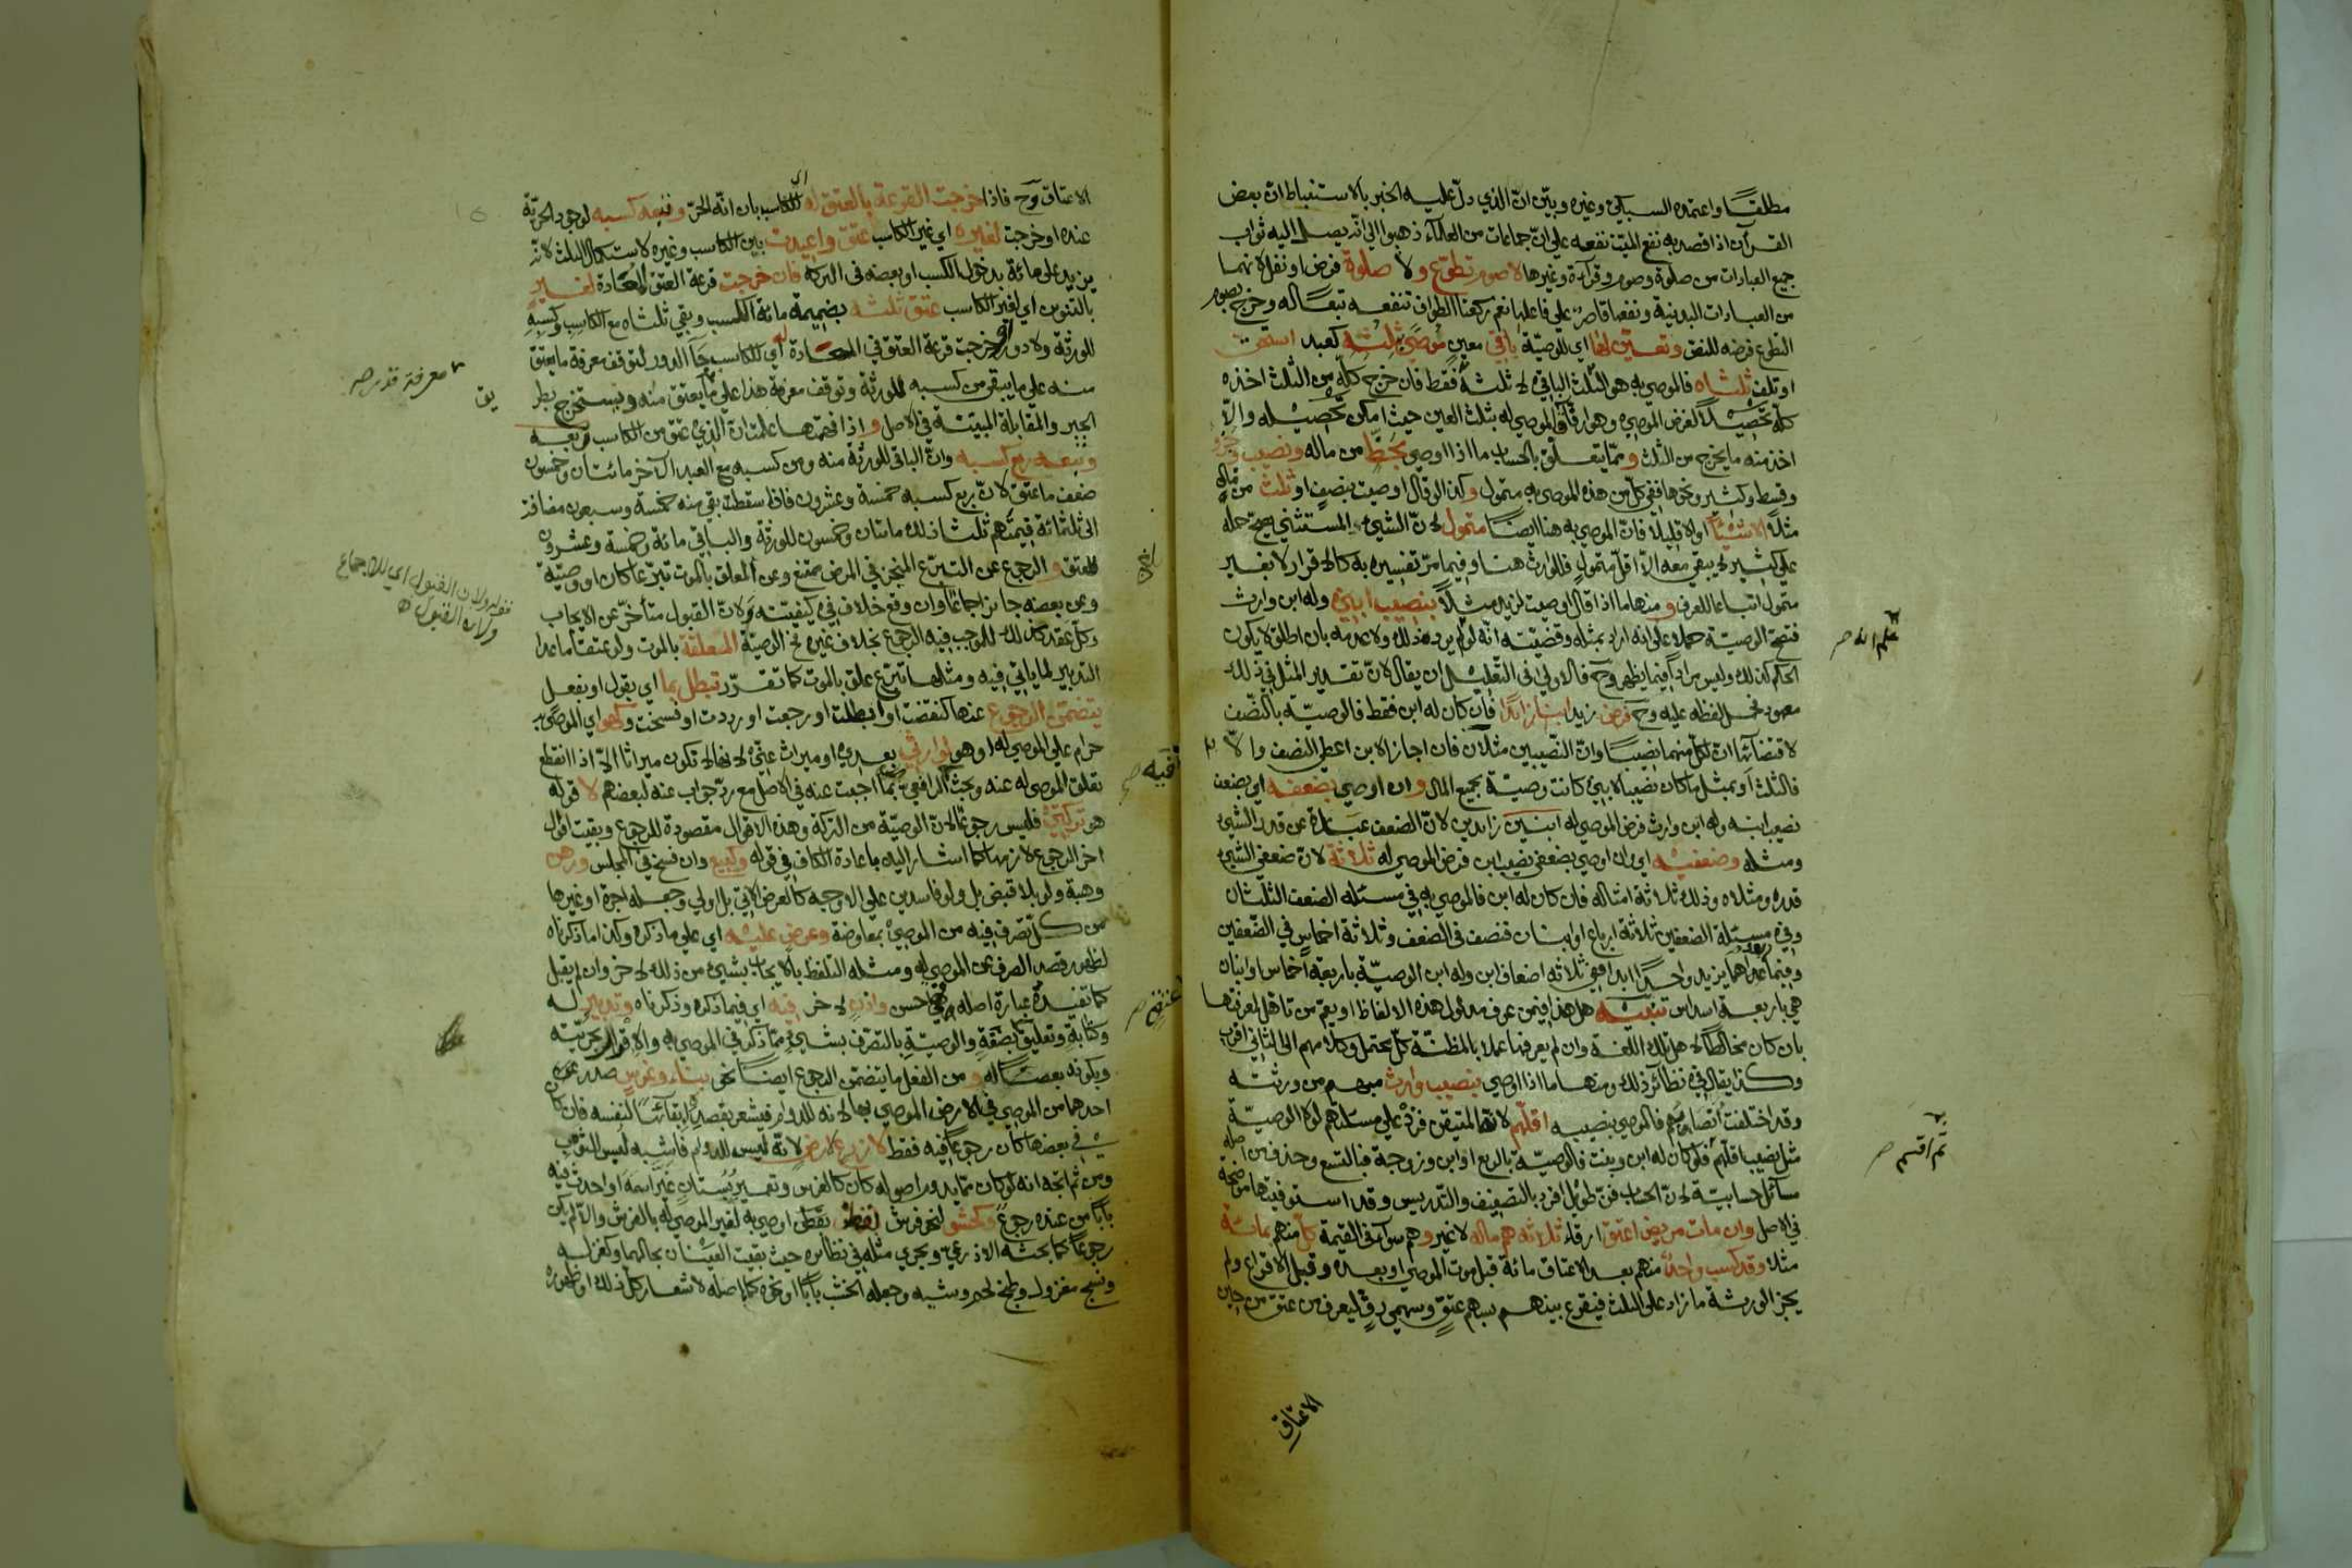 مطلقًا واعتمده السبكي وغيره وبيّن انّ الذي دلّ عليه الخبر بالاستنباط انّ بعض
القرآن اذا قصد به نفع الميّت نفعه على انّ جماعات من العلمآء ذهبوا الى انّه يصل اليه ثواب
جميع العبادات من صلوة وصوم وقرآءة وغيرها لا صوم تطوّع ولا صلوة فرض او نفل لانهما
من العبادات البدنية ونفعها قاصر على فاعلها نعم ركعتا الطواف تنفعه تبعًا له وخرج بصوم
التطوع فرضه للنفق وتعيّن لها اي للوصيّة باقي معين موصًى بثلثه كعبد استحق
او تلف ثلثاه فالموصى به هو الثّلث الباقي لا ثلثه فقط فان خرج كلّه من الثّلث اخذه
كلّه تحصيلاً لغرض الموصي وهو ارفاق الموصى له بثلث العين حيث امكن تحصيله والّا
اخذ منه ما يخرج من الثلث وممّا يتعلّق بالحساب ما اذا اوصى بحظّ من ماله ونصيب وجزء
وقسط وكثير ونحوها ففي كلّ من هذه الموصى به متمول وكذا لو قال اوصيت بنصف او ثلث من ماله
مثلًا الا شيئًا او الا قليلا فانّ الموصى به هنا ايضًا متمول لانّ الشيء المستثنى يصح حمله
على كثير لا يبقى معه الّا اقلّ متمول فللوارث هنا وفيما مرّ تفسيره به كالاقرار لا بغير
متمول اتباعا للعرف ومنها ما اذا قال اوصيت لزيد مثلًا بنصيب ابني وله ابن وارث
فتصح الوصيّة حملا على انه اراد بمثله وقضيّته انّه لو لم يرد ذلك ولا عدمه بان اطلق لا يكون
الحكم كذلك وليس مرادًا فيما يظهر وح فالاولى في التعليل ان يقال لانّ تقدير المثل في ذلك
معهود فحمل لفظه عليه وح فرض زيد ابنا زائدًا فان كان له ابن فقط فالوصيّة بالنّصف
لاقتضائها انّ لكلّ منهما نصيبًا وانّ النّصيبين مثلان فان اجاز الابن اعطي النصف والّا
فالثلث او بمثل ما كان نصيبا لابني كانت وصيّة بجميع المال وان اوصى بضعفه اي بضعف
نصيب ابنه وله ابن وارث فرض الموصى له ابنين زائدين لانّ الضعف عبارة عن قدر الشيء
ومثله وضعفيه اي وان اوصى بضعفي نصيب ابن فرض الموصى له ثلاثة لانّ ضعفي الشيء
قدره ومثلاه وذلك ثلاثة امثاله فان كان له ابن فالموصى به في مسئلة الضعف الثلثان
وفي مسئلة الضعفين ثلاثة ارباع او ابنان فنصف في الضعف وثلاثة اخماس في الضّعفين
وفيما بعدهما يزيد واحدًا ابدا ففي ثلاثة اضعاف ابن وله ابن الوصيّة باربعة اخماس او ابنان
هي باربعة اسداس تنبيه هل هذا فيمن عرف مدلول هذه الالفاظ او يعم من تاهل لمعرفتها
بان كان مخالطًا لاهل تلك اللغة وان لم يعرفها عملا بالمظنّة كلّ محتمل وكلامهم الى الثاني اقرب
وكذا يقال في نظائر ذلك ومنها ما اذا اوصى بنصيب وارث مبهم من ورثته
وقد اختلفت انصباؤهم فالموصى بنصيبه اقلّهم لانّه المتيقن فزد على مسئلتهم لولا الوصيّة
مثل نصيب اقلّهم فلو كان له ابن وبنت فالوصيّة بالربع او ابن وزوجة فبالتسع وحذف من اصله
مسائل حسابيّة لانّ الحساب فنّ طويل افرد بالتصنيف والتدريس وقد استوفيتها موضحة
في الاصل وان مات مريض اعتق ارقاء ثلاثة هم ماله لا غير وهم سوآء في القيمة كلّ منهم بمائة
مثلا وقد كسب واحد منهم بعد الاعتاق مائة قبل موت الموصي او بعده وقبل الاقراع ولم
يجز الورثة ما زاد على الثلث فيقرع بينهم بسهم عتق وسهمي رقّ ليعرف من عتق من حين
الاعتاق
الاعتاق وح فاذا خرجت القرعة بالعتق له اي للكاسب بان انّه الحرّ وتبعه كسبه لوجود الحريّة
عنده او خرجت لغيره اي غير الكاسب عتق واعيدت بين الكاسب وغيره لاستكمال الثلث لانّه
يزيد على مائة بدخول الكسب او بعضه في التركة فان خرجت قرعة العتق المعادة لغير
بالتنوين اي لغير الكاسب عتق ثلثه بضميمة مائة الكسب وبقي ثلثاه مع الكاسب وكسبه
للورثة ولا دور او خرجت قرعة العتق في المعادة له اي للكاسب جآء الدور لتوقف معرفة ما يعتق
منه على ما يبقى من كسبه للورثة وتوقف معرفة هذا على ما يعتق منه ويستخرج بطر
يق
معرفة قدر صح
الجبر والمقابلة المبيّنة في الاصل واذا فهمتها علمت انّ الذي عتق من الكاسب ربعه
وتبعه ربع كسبه وانّ الباقي للورثة منه ومن كسبه مع العبد الآخر مائتان وخمسون
ضعف ما عتق لانّ ربع كسبه خمسة وعشرون فاذا سقطت بقي منه خمسة وسبعون مضافة
الى ثلثمائة قيمتهم ثلثا ذلك مائتان وخمسون للورثة والباقي مائة وخمسة وعشرون
للعتق والرجوع عن التبرّع المنجز في المرض ممتنع وعن المعلق بالموت تبرّعا كان او وصيّة
وعن بعضه جائز اجماعًا وان وقع خلاف في كيفيّته ولانّ القبول متأخّر عن الايجاب
وكلّ عقد كذلك للموجب فيه الرجوع بخلاف غيره نحو الوصيّة المعلقة بالموت ولو عتقا ما عدا
التدبير لما يأتي فيه ومثلها تبرّع علق بالموت كما تقرّر تبطل بما اي بقول او بفعل
يتضمّن الرجوع عنها كنقضت او ابطلت او رجعت او رددت او فسخت وكهو اي الموصى به
حرام على الموصى له او هو لوارثي بعدي او ميراث عنّي لانها لا تكون ميراثا الّا اذا انقطع
تعلق الموصى له عنه وبحث الرافعي بما اجبت عنه في الاصل مع ردّ جواب عنه لبعضهم لا قوله
هو تركتي فليس رجوعًا لانّ الوصيّة من التركة وهذه الاقوال مقصودة للرجوع وبقيت اقوال
اخر الرجوع لازمها كما اشار اليه باعادة الكاف في قوله وكبيع وان فسخ في المجلس ورهن
وهبة ولو بلا قبض بل ولو فاسدين على الاوجه كالعرض الآتي بل اولى وجعله اجرة او غيرها
من كل تصرّف فيه من الموصي بمعاوضة وعرض عليه اي على ما ذكر وكذا ما ذكرناه
لظهور قصد الصرف عن الموصى له ومثله التلفظ بالايجاب بشيء من ذلك لاخر وان لم يقبل
كما تفيده عبارة اصله فهي احسن واذن لاخر فيه اي فيما ذكره وذكرناه وتدبير له
وكتابة وتعليق بصفة والوصيّة بالتصرّف بشيء ممّا ذكر في الموصى به والاقرار بحريّته
وبكونه بعضا له ومن الفعل ما يتضمّن الرجوع ايضًا نحو بناء وغرس صدر
احدهما من الموصي في الارض الموصى بها لانه للدوام فيشعر بقصده ابقائها لنفسه فان كان
في بعضها كان رجوعًا فيه فقط لا زرع لارض لانّه ليس للدوام فاشبه لبس الثوب
ومن ثم اتجه انه لو كان ممّا يدوم اصوله كان كالغرس وتعمير بستان غيّر اسمه او احدث فيه
بابا من عنده رجوع وكحشو لنحو فرش لقطن بقطن اوصى به لغير الموصى له بالفرش والّا لم يكن
رجوعًا كما بحثه الاذرعي ويجري مثله في نظائره حيث بقيت العينان بحالهما وكغزله
ونسج مغزول وطبخ لحم وشيه وجعله الخشب بابًا او نحوه كما باصله لاشعار كلّ ذلك او ظهوره